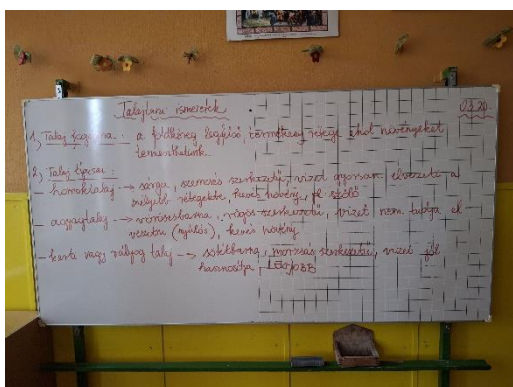 Talajtani ismeretek
03.20.
1, Talaj fogalma: a földkéreg legfelső termékeny rétege ahol növényeket
termeszthetünk.
2, Talaj típusai:
- homoktalaj → sárga, szemcsés szerkezetű, vizet gyorsan elvezeti a
mélyebb rétegekbe, kevés növény, pl. szőlő
- agyagtalaj → vörösesbarna, rögös szerkezetű, vizet nem tudja el
vezetni (nyúlós), kevés növény
- kerti vagy vályog talaj → sötétbarna, morzsás szerkezetű, vizet jól
hasznosítja, LEGJOBB